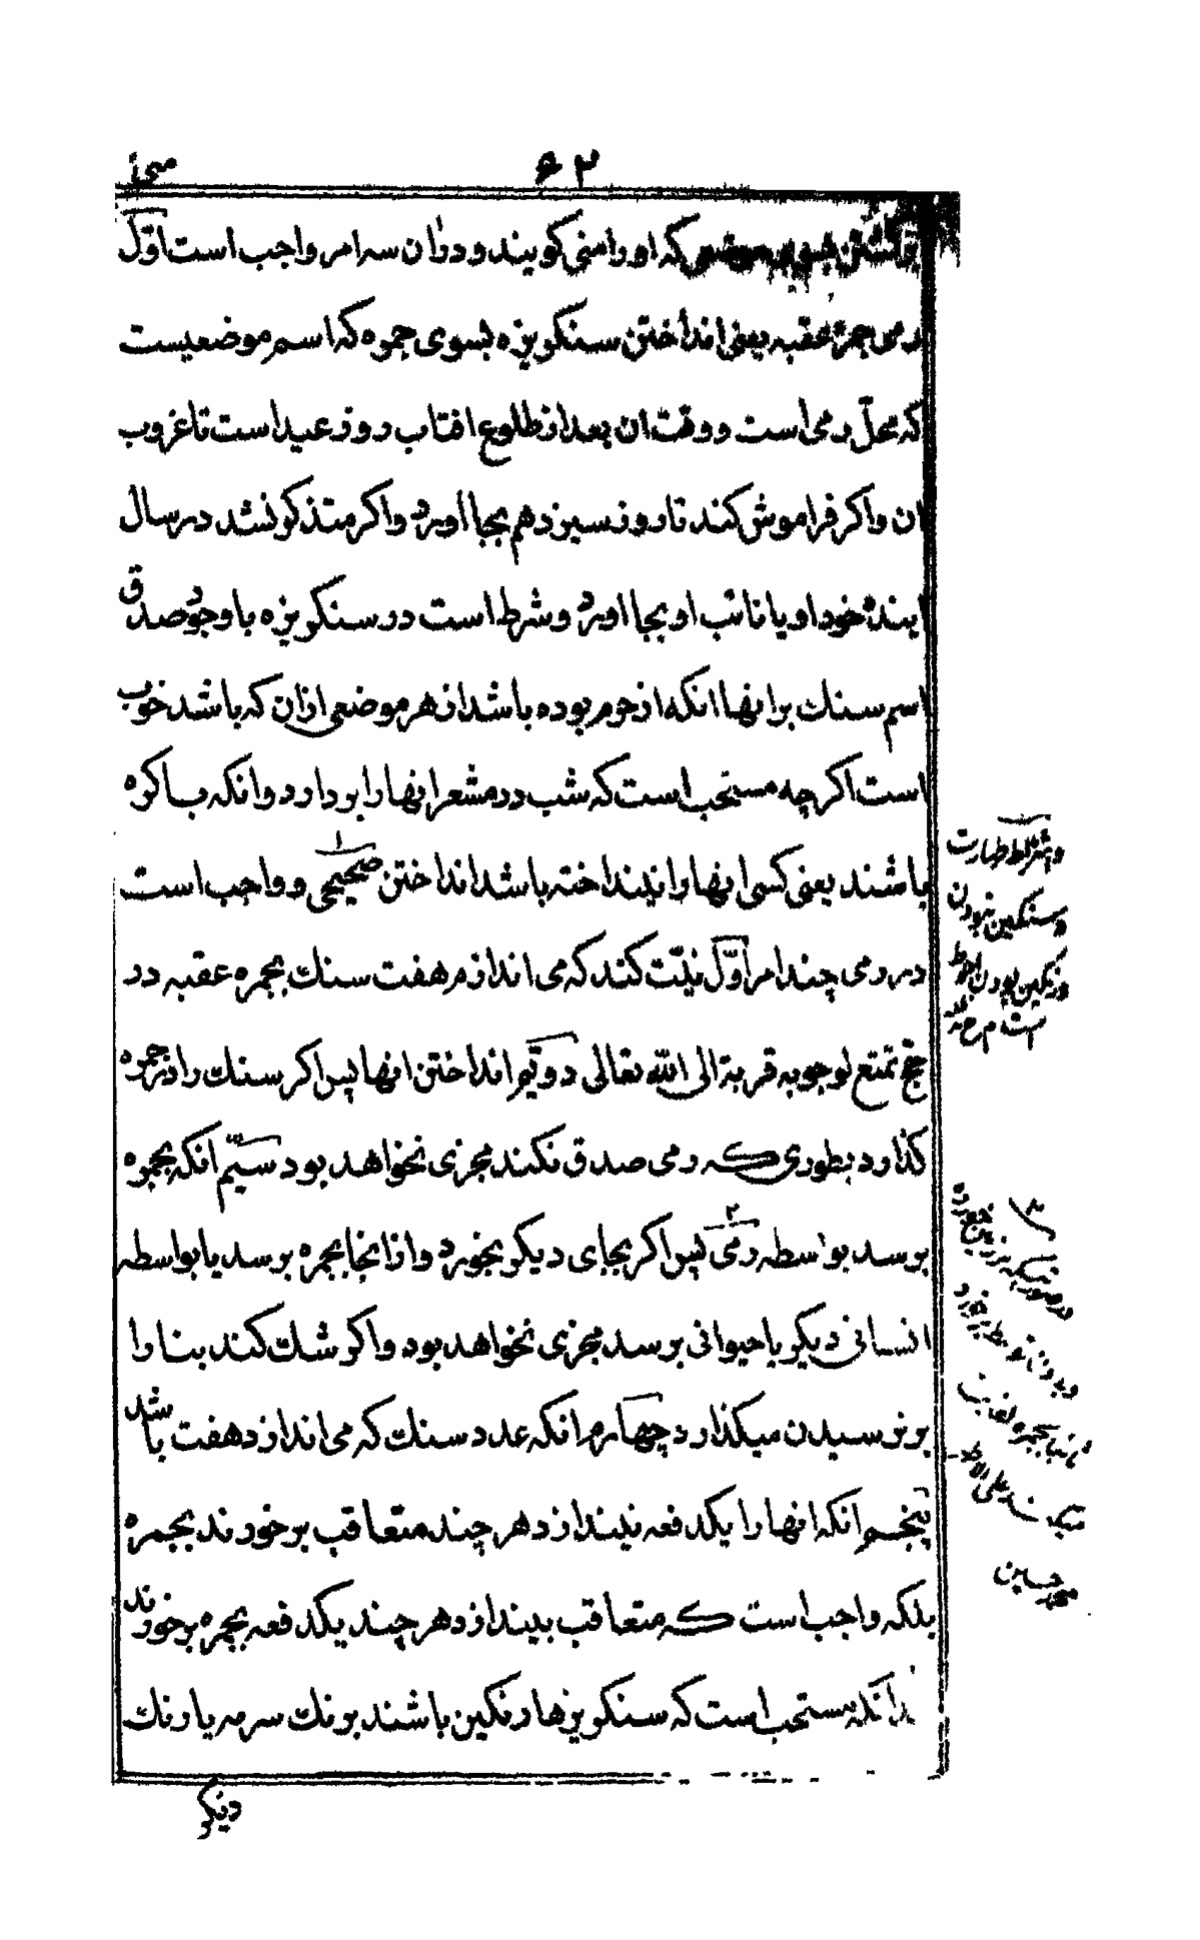 ۶۲
منی
برگشتن بسوی موضعی که او را منی گویند و در ان سه امر واجب است اوّل
رمی جمرهٔ عقبه یعنی انداختن سنکریزه بسوی جمره که اسم موضعیست
که محلّ رمی است و وقت ان بعد از طلوع افتاب روز عید است تا غروب
ان و اکر فراموش کند تا روز سیزدهم بجا آورد و اکر متذکر نشد در سال
ایندهٔ خود او یا نائب او بجا اورد و شرط است در سنکریزه با وجود صدق
اسم سنك بر انها انکه از حرم بوده باشد از هر موضعی از ان که باشد خوب
است اکر چه مستحب است که شب در مشعر انها را بردارد و انکه باکره
باشند یعنی کسی انها را نینداخته باشد انداختن صحیحی و واجب است
در رمی چند امر اوّل نیّت کند که می اندازم هفت سنك بجمره عقبه در
حجّ تمتع لوجوبه قربة الی الله تعالی دوّیم انداختن انها پس اکر سنك را در جمره
کذارد بطوری که رمی صدق نکند مجزی نخواهد بود سیّم انکه بجمره
برسد بواسطه رمی پس اکر بجای دیکر بخورد و از انجا بجمره برسد یا بواسطه
انسانی دیکر یا حیوانی برسد مجزی نخواهد بود و اکر شك کند بنا را
بر نرسیدن میکذارد چهارم انکه عدد سنك که می اندازد هفت باشد
پنجم انکه انها را یکدفعه نیندازد هر چند متعاقب برخورند بجمره
بلکه واجب است که متعاقب بیندازد هر چند یکدفعه بجمره برخورند
بدانکه مستحب است که سنکریزها رنکین باشند برنك سرمه یا رنك
دیکر
واشتراط طهارت
و سنکین نبودن
و رنکین بودن احوط
است م ح مد ظله
در صورتیکه بزمین خورده
محمد حسین